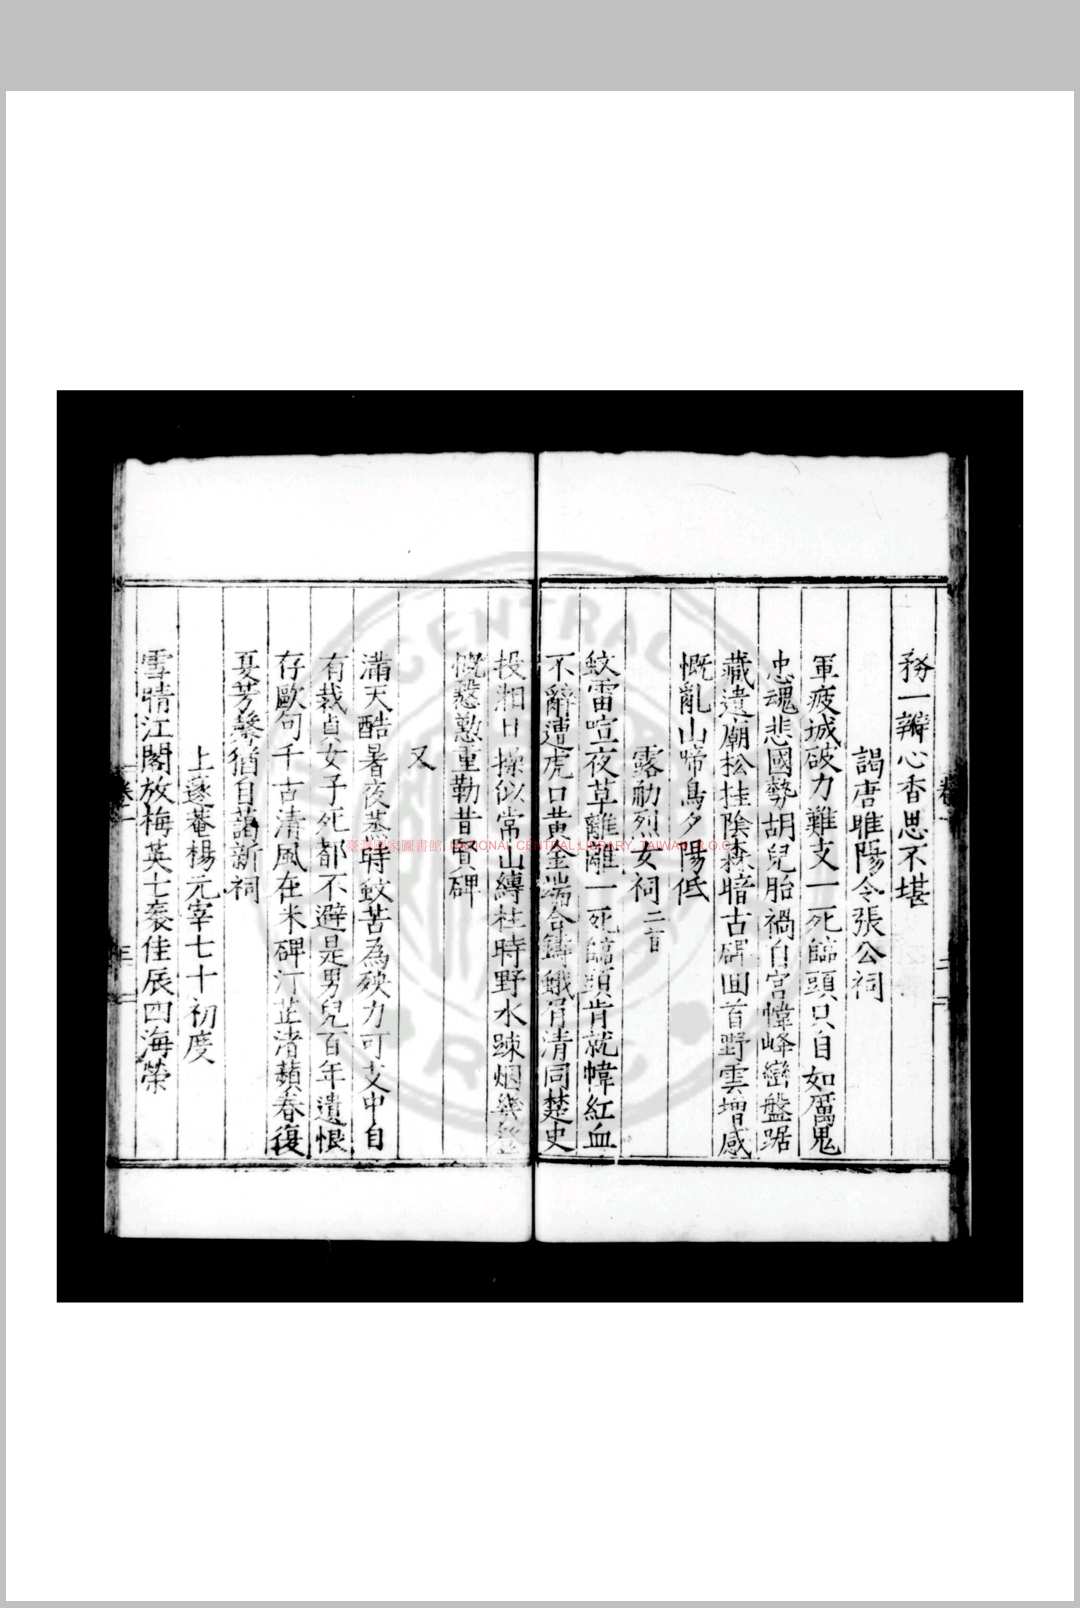 務一瓣心香思不堪
謁唐睢陽令張公祠
軍疲城破力難支一死臨頭只自如厲鬼
忠魂悲國勢胡兒胎禍自宮幃峰巒盤踞
藏遺廟松挂陰森暗古碑回首野雲增感
慨亂山啼鳥夕陽低
露觔烈女祠二首
蚊雷喧夜草離離一死臨頭肯就幃紅血
不辭遭虎口黃金端合鑄蛾眉清同楚史
投湘日操似常山縛柱時野水疎烟幾
慨慇懃重勒昔賢碑
又
滿天酷暑夜蒸時蚊苦為殃力可支中自
有裁貞女子死都不避是男兒百年遺恨
存歐句千古清風在米碑汀芷渚蘋春復
夏芳馨猶自薦新祠
上邃菴楊元宰七十初度
雪晴江閣放梅英七袠佳辰四海榮
卷一
二
卷一
三
臺灣國家圖書館, NATIONAL CENTRAL LIBRARY, TAIWAN (R.O.C)
NATIONAL CENTRAL